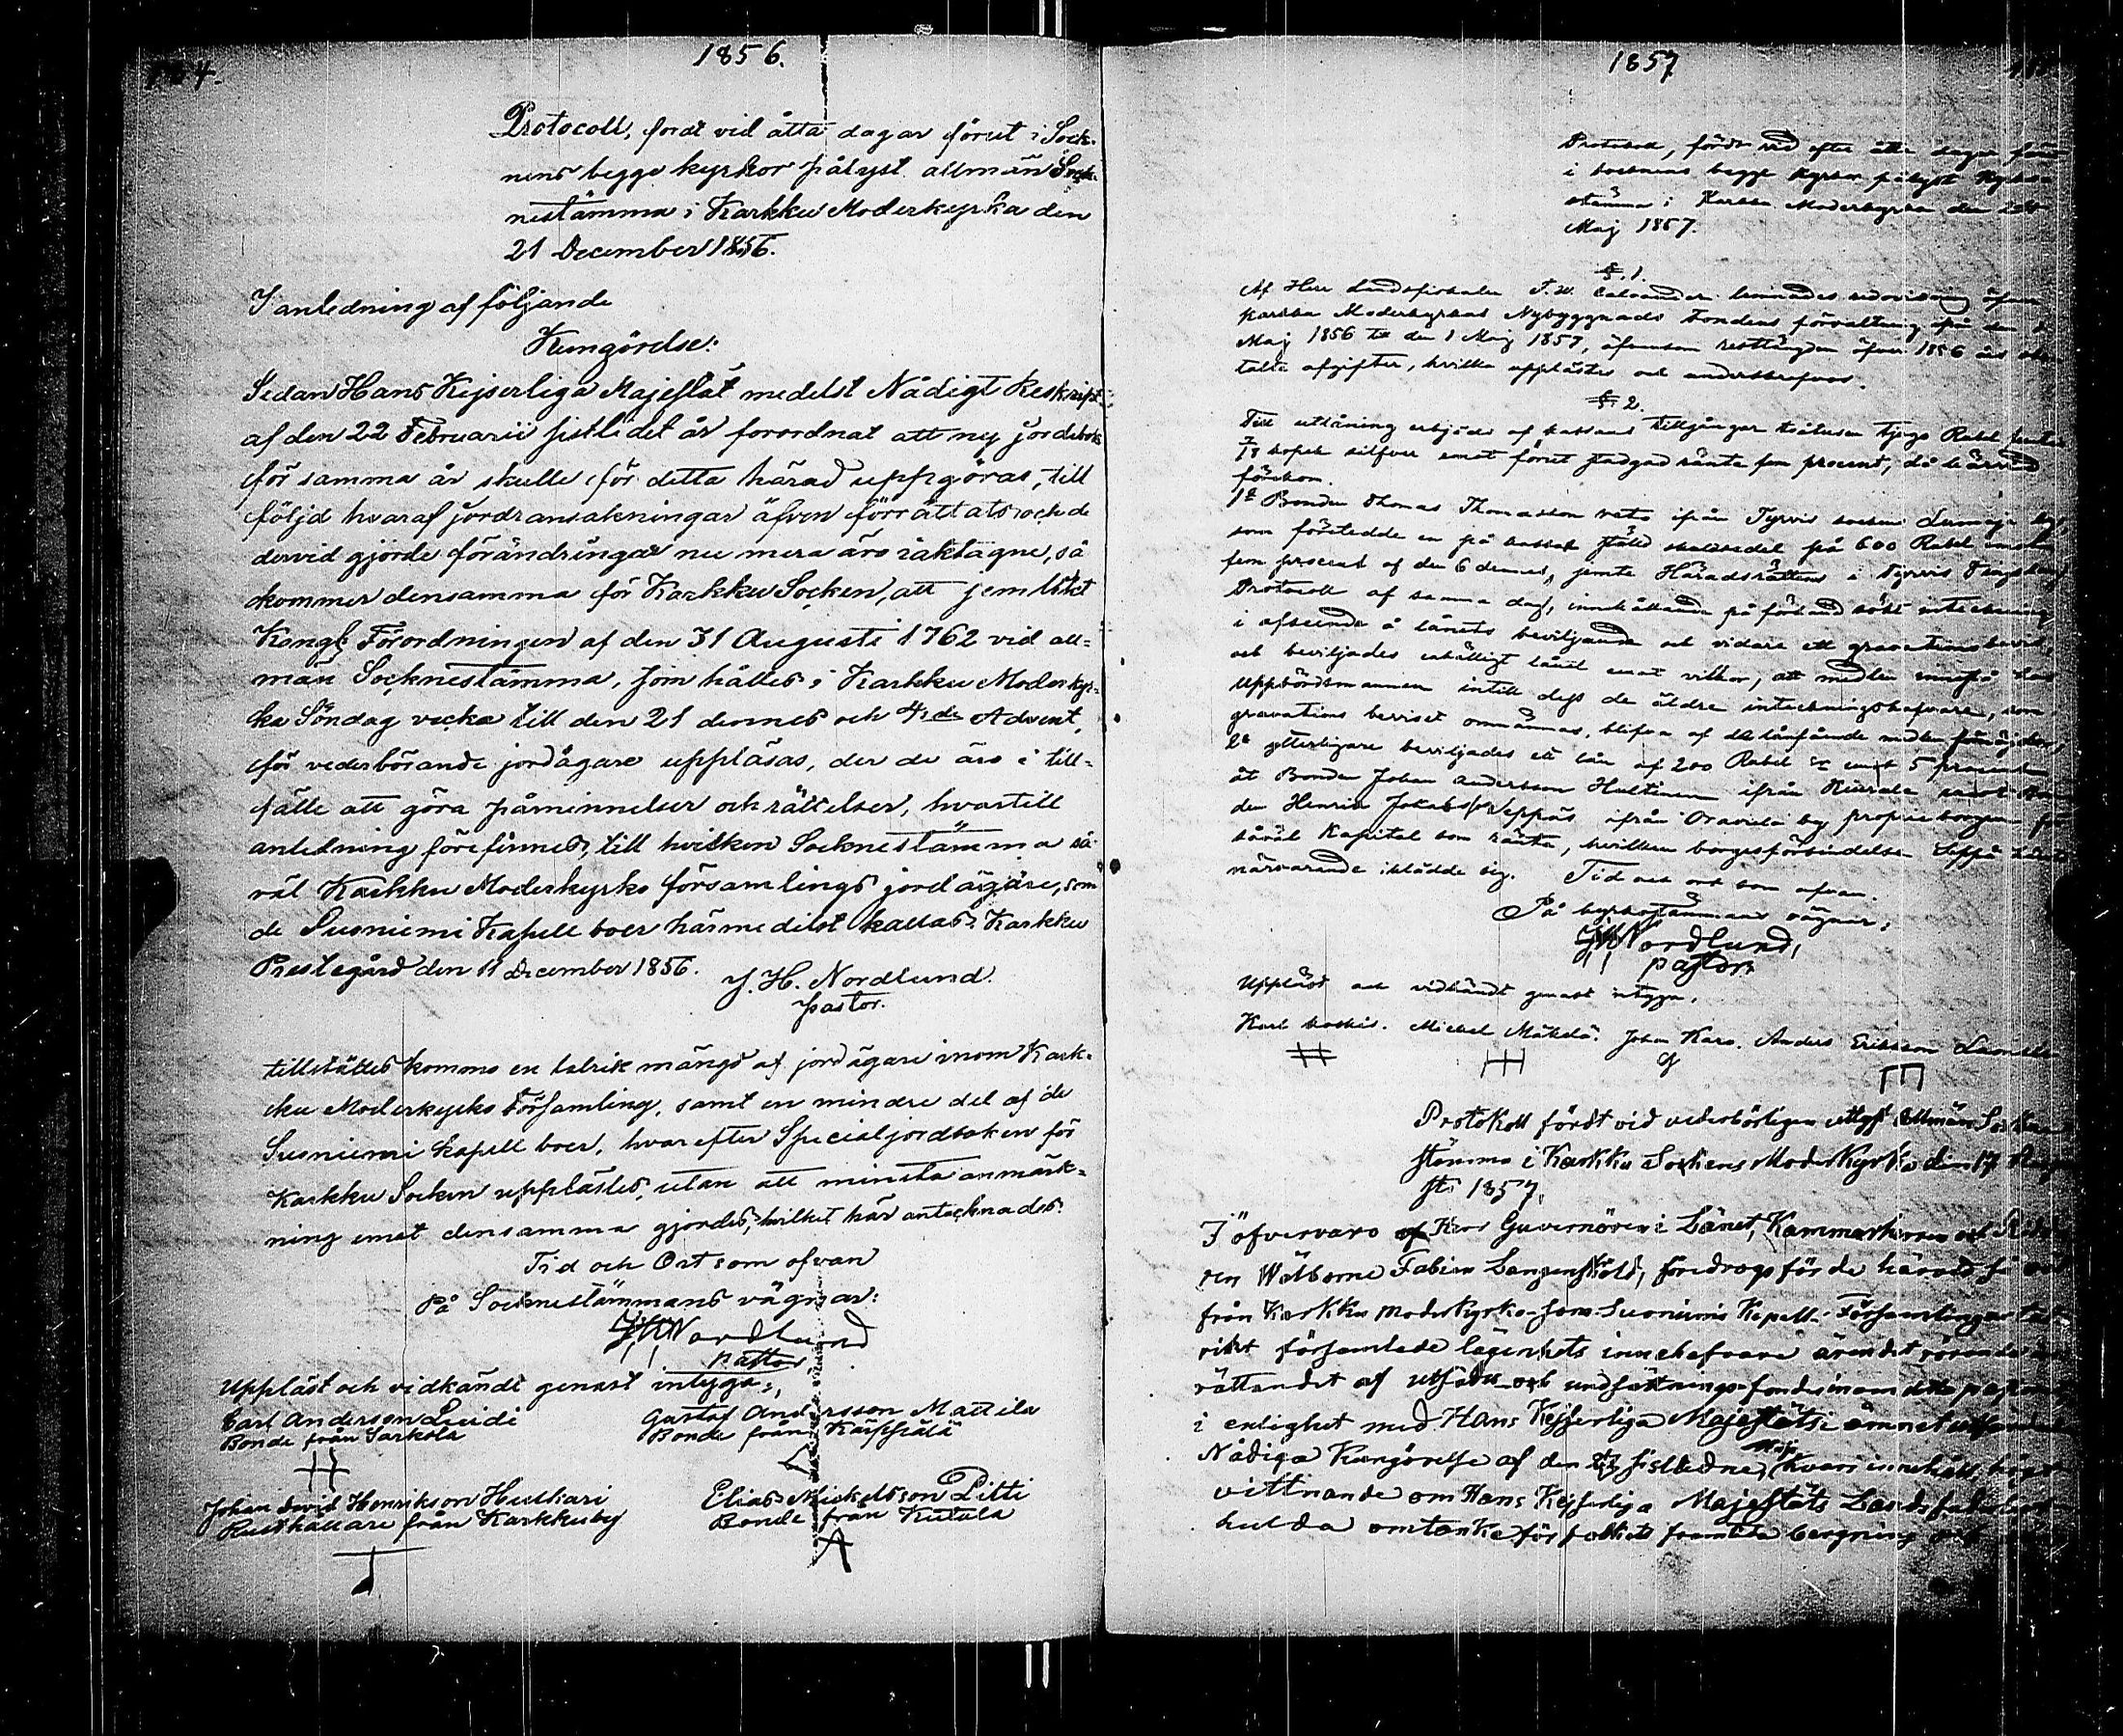 1856.
Protocoll, fördt vid åtta dagar förut i Sock-
nens begge kyrkor pålyst allmän Sock-
nestämma i Karkku Moderkyrka den
21 December 1856.
I anledning af följande
Kungörelse:
Sedan Hans Kejserliga Majestät medelst Nådigt Reskript
af den 22 Februarii sistlidet år förordnat att ny jordebok
för samma år skulle för detta härad uppgöras, till
följd hvaraf jordransakningar äfven förrättats och de
dervid gjorde förändringar nu mera äro iakttagne, så
kommer densamma för Karkku Socken, att jemlikt
Kongl. Förordningen af den 31 Augusti 1762 vid all-
män Socknestämma, som hålles i Karkku Moderkyr-
ka Söndag vecka till den 21 dennes och 4de Advent,
för vederbörande jordägare uppläsas, der de äro i till-
fälle att göra påminnelser och rättelser, hvartill
anledning förefinnes, till hvilken Socknestämma så
väl Karkku Moderkyrko församlings jordägare, som
de Suoniemi Kapell boer härmedelst kallas. Karkku
Prestegård den 11 December 1856.
J. H. Nordlund.
pastor.
tillstädes kommo en talrik mängd af jordägare inom Kark-
ku Moderkyrko Församling, samt en mindre del af de
Suoniemi kapell boer, hvarefter Specialjordboken för
Karkku Socken upplästes, utan att minsta anmärk-
ning emot densamma gjordes, hvilket här antecknades.
Tid och Ort som ofvan
På Socknestämmans vägnar:
J H Nordlund
pastor
Uppläst och vidkändt genast intyga:
Carl Anderson Luidi
Bonde från Sarkola
Gustaf Andersson Mattila
Bonde från Käppälä
Johan David Henrikson Hulkari
Rusthållare från Karkkuby
Elias Mickelsson Pitti
Bonde från Kutala
1857
Protokoll, fördt vid efter åtta dagar förut
i socknens begge kyrkor pålyst Kyrko-
stämma i Karkku Moderkyrka den
Maj 1857.
§. 1.
Af Herr Landsfiskalen lemnades redovisning öfver
Karkku Moderkyrkas Nybyggnads Fondens förvaltning ifrån den
Maj 1856 till den 1 Maj 1857, äfvensom restlängden öfver 1856 års
talte afgifter, hvilka upplästes och underskrefvos.
§. 2.
Till utlåning erbjöds af kassans tillgångar Rubel
kopek silfver emot förut stadgad ränta fem procent, då härvid
förekom.
1o Bonden Thomas Thomasson ifrån Tyrvis socken
som företedde en på kassan ställd skuldsedel på 600 Rubel
fem procent af den 6 dennes, jemte Häradsrättens i Tyrvis
Protocoll af samma dag, innehållande på förhand sökt inteckning
i afseende å lånets beviljande och vidare ett gravationsbevis,
och beviljades lånet emot vilkor, att medlen
Uppbördsmannen intill dess de äldre inteckningshafvare, som
gravations beviset omnämnas, blifva af
2o ytterligare beviljades ett lån af 200 Rubel emot 5 procent
åt Bonden Johan Andersson Hultinen ifrån
den Henrik ifrån Oravala by proprieborgen för
såväl Kapital som ränta, hvilken borgesförbindelse
närvarande iklädde sig. Tid och ort som ofvan.
På kyrkostämmans vägnar:
J H Nordlund,
pastor
Uppläst och vidkändt genast intyga.
Karl Michel Mäkelä. Johan Karo. Anders Eriksson
Protokoll fördt vid vederbörligen utlyst Allmän Sockne
stämma i Karkku Sockens Moderkyrka den 17
sti 1857.
I öfvervaro af Herr Guvernören i Länet, Kammarherren och
ren Wälborne Fabian Langenskiöld, föredrogs för de härvid
från Karkku Moderkyrko- som Suoniemis Kapell-Församlingar
rikt församlade lägenhets innehafvare ärendet rörande
rättandet af Utsädes- och undsättnings-fonds inom detta
i enlighet med Hans Kejserliga Majestäts i ämnet
Nådiga Kungörelse af den sistledne Maj hvars innehåll
vittnande om Hans Kejserliga Majestäts
hulda omtanke för folkets framtida bergning och